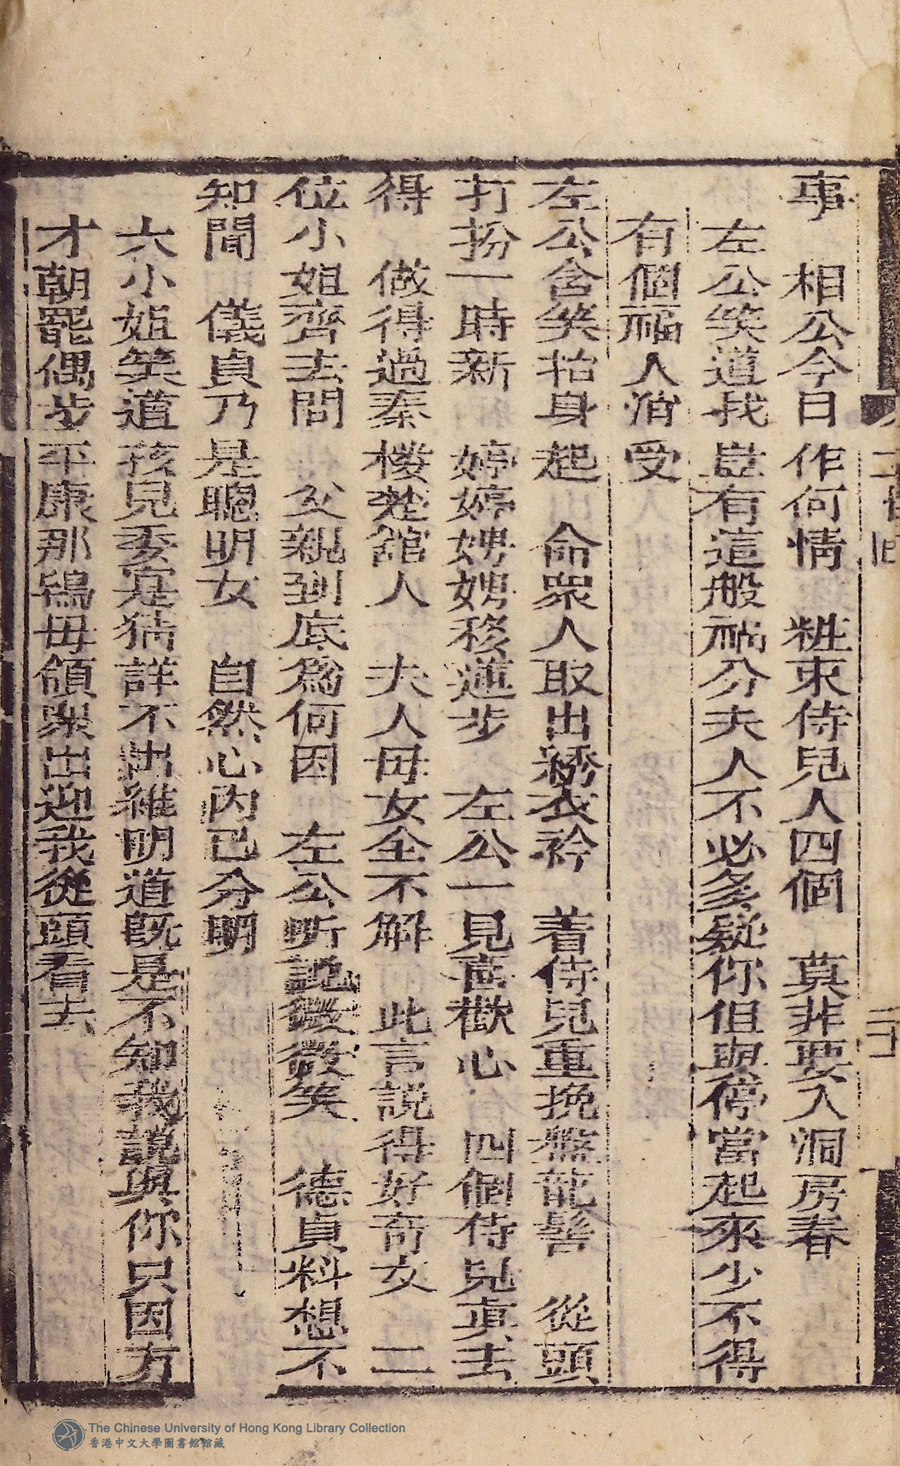 事　相公今日作何情　粧束侍兒人四個　莫非要入洞房春
左公笑道我豈有這般福分夫人不必多疑你但與停當起來少不得
有個福人消受
左公含笑抬身起　命眾人取出綉衣衿　着侍兒重挽盤龍髻　從頭
打扮一時新　婷婷娉娉移蓮步　左公一見喜歡心　四個侍兒真去
得　做得過秦樓楚舘人　夫人母女全不解　此言説得好奇文　二
位小姐齊去問　父親到底為何因　左公听説微微笑　德貞料想不
知聞　儀貞乃是聰明女　自然心内已分明
六小姐笑道孩兒委寔猜詳不出維明道既是不知我說與你只因方
才朝罷偶步平康那鴇母領眾出迎我從頭看去
二十
The Chinese University of Hong Kong Library Collection
香港中文大學圖書館館藏